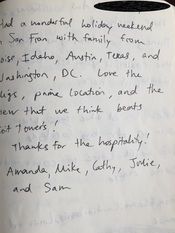 Had a wonderful holiday weekend
San Fran with family from
oise, Idaho, Austin, Texas, and
ashington, DC. Love the
digs, prime location, and the
iew that we think beats
oit Tower's!
Thanks for the hospitality!
Amanda, Mike, Cathy, Jodie,
and Sam